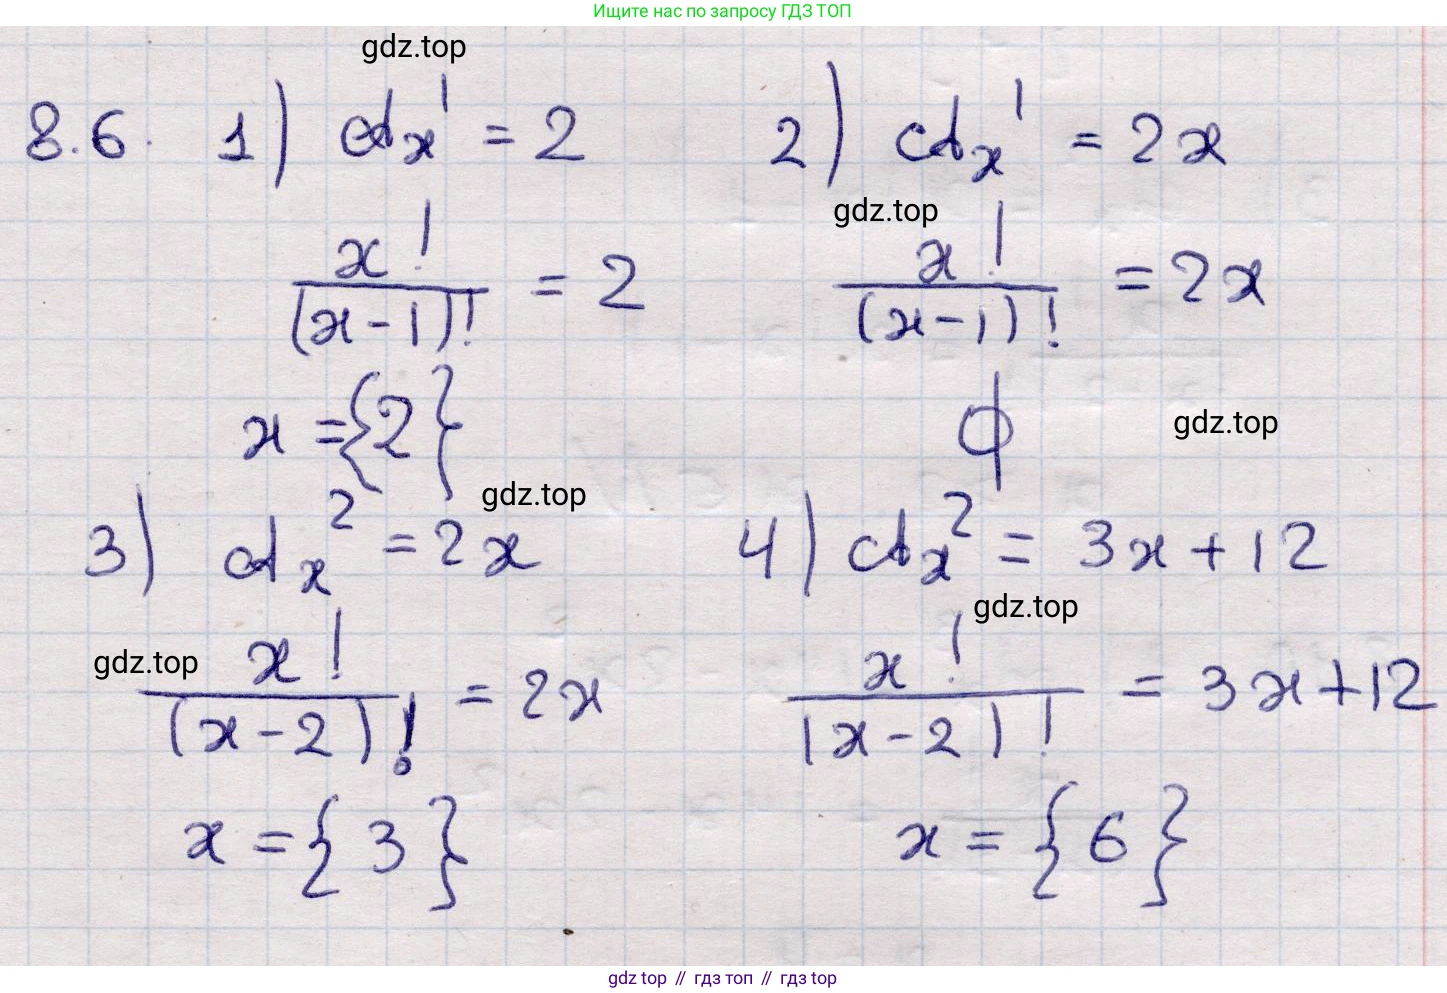 Ищите нас по запросу ГДЗ ТОП
gdz.top
8.6. 1) A_x^1 = 2
2) A_x^1 = 2x
gdz.top
x! / (x-1)! = 2
x! / (x-1)! = 2x
x = {2}
∅
gdz.top
gdz.top
3) A_x^2 = 2x
4) A_x^2 = 3x + 12
gdz.top
gdz.top
x! / (x-2)! = 2x
x! / (x-2)! = 3x + 12
x = {3}
x = {6}
gdz top // гдз топ // гдз top